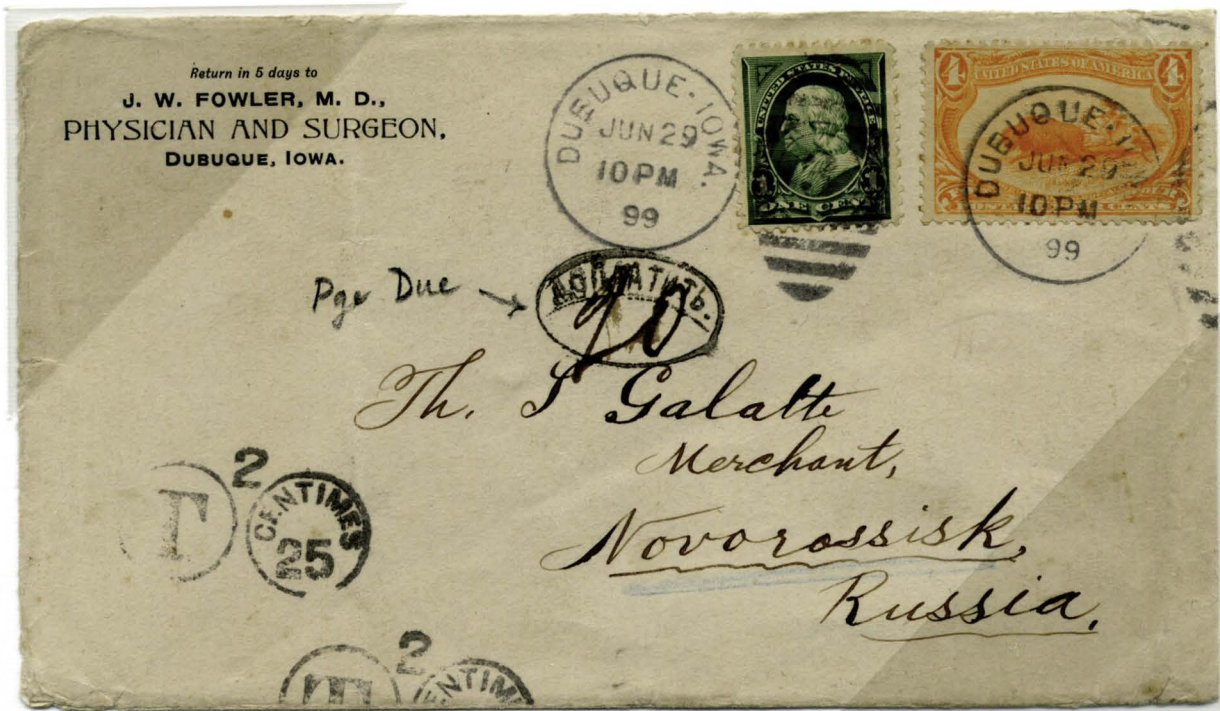 Return in 5 days to
J. W. FOWLER, M. D.,
PHYSICIAN AND SURGEON,
DUBUQUE, IOWA.
DUBUQUE·IOWA.
JUN 29
10PM
99
UNITED STATES POSTAGE
1 1
ONE CENT
4 4
UNITED STATES OF AMERICA
CENTS
DUBUQUE·I
JUN 29
10PM
99
Pge Due
ДОПЛАТИТЬ.
Th. S Galatte
Merchant,
Novorossisk,
Russia.
T
2
CENTIMES
25
T
2
CENTIM